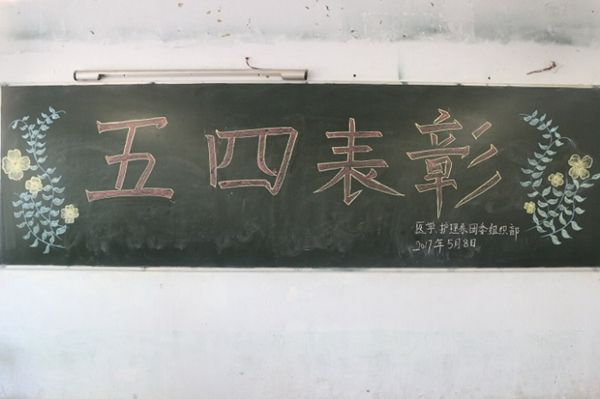 五四表彰
医学护理系团委组织部
2017年5月8日